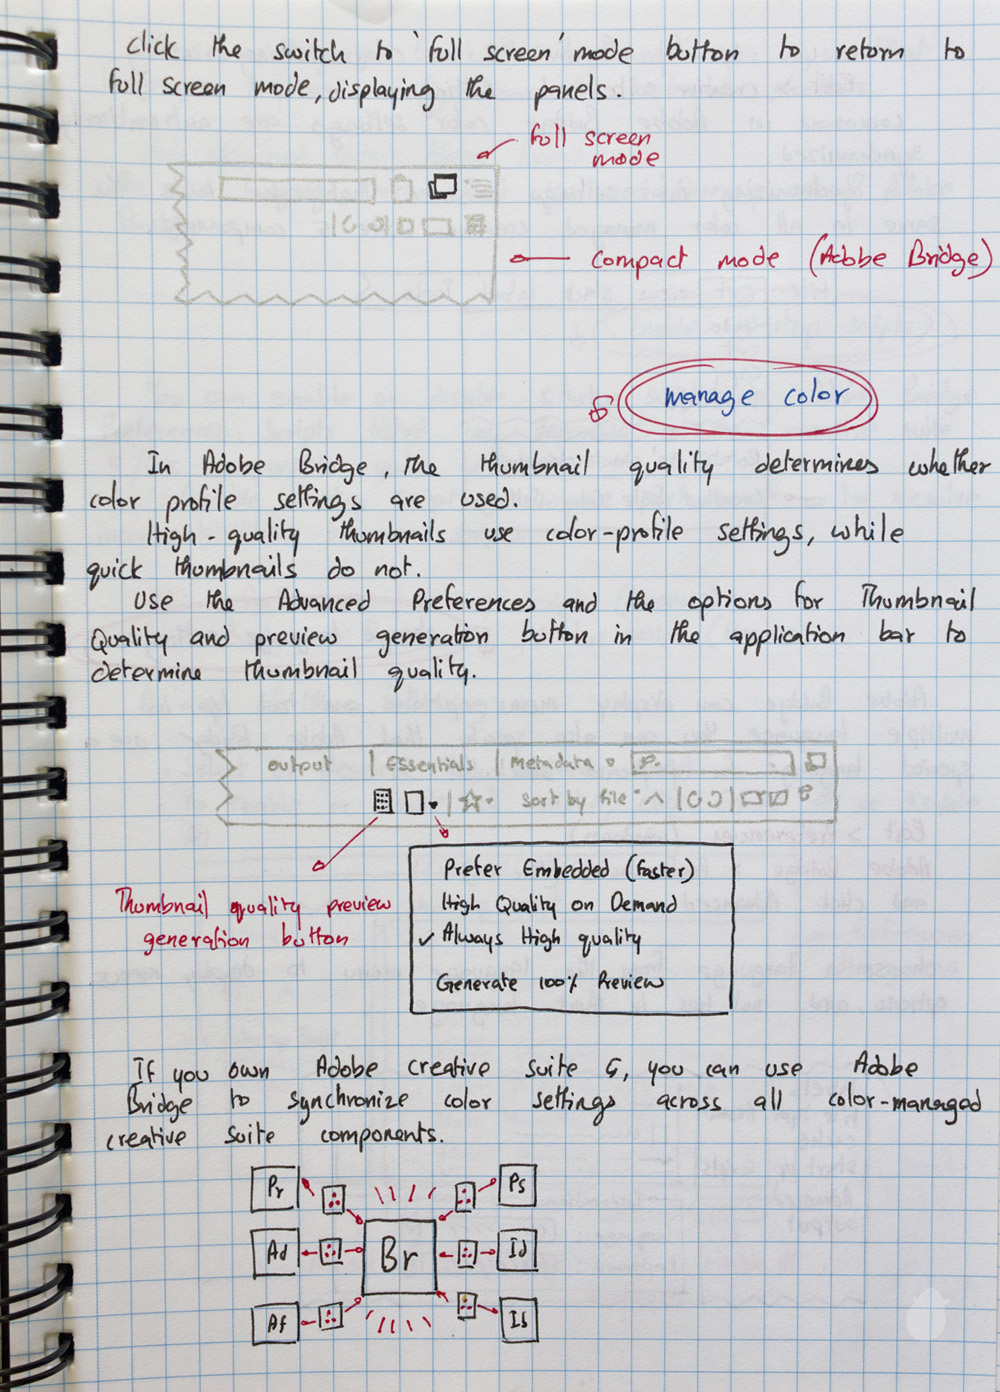 click the switch to 'full screen' mode button to return to
full screen mode, displaying the panels.
full screen
mode
compact mode (Adobe Bridge)
manage color
In Adobe Bridge, the thumbnail quality determines whether
color profile settings are used.
High-quality thumbnails use color-profile settings, while
quick thumbnails do not.
Use the Advanced Preferences and the options for Thumbnail
Quality and preview generation button in the application bar to
determine thumbnail quality.
output | Essentials | Metadata
Sort by file
Prefer Embedded (faster)
High Quality on Demand
✓ Always High quality
Generate 100% Preview
Thumbnail quality preview
generation button
If you own Adobe creative suite 6, you can use Adobe
Bridge to synchronize color settings across all color-managed
creative suite components.
Pr
Ps
Ad
Br
Id
Af